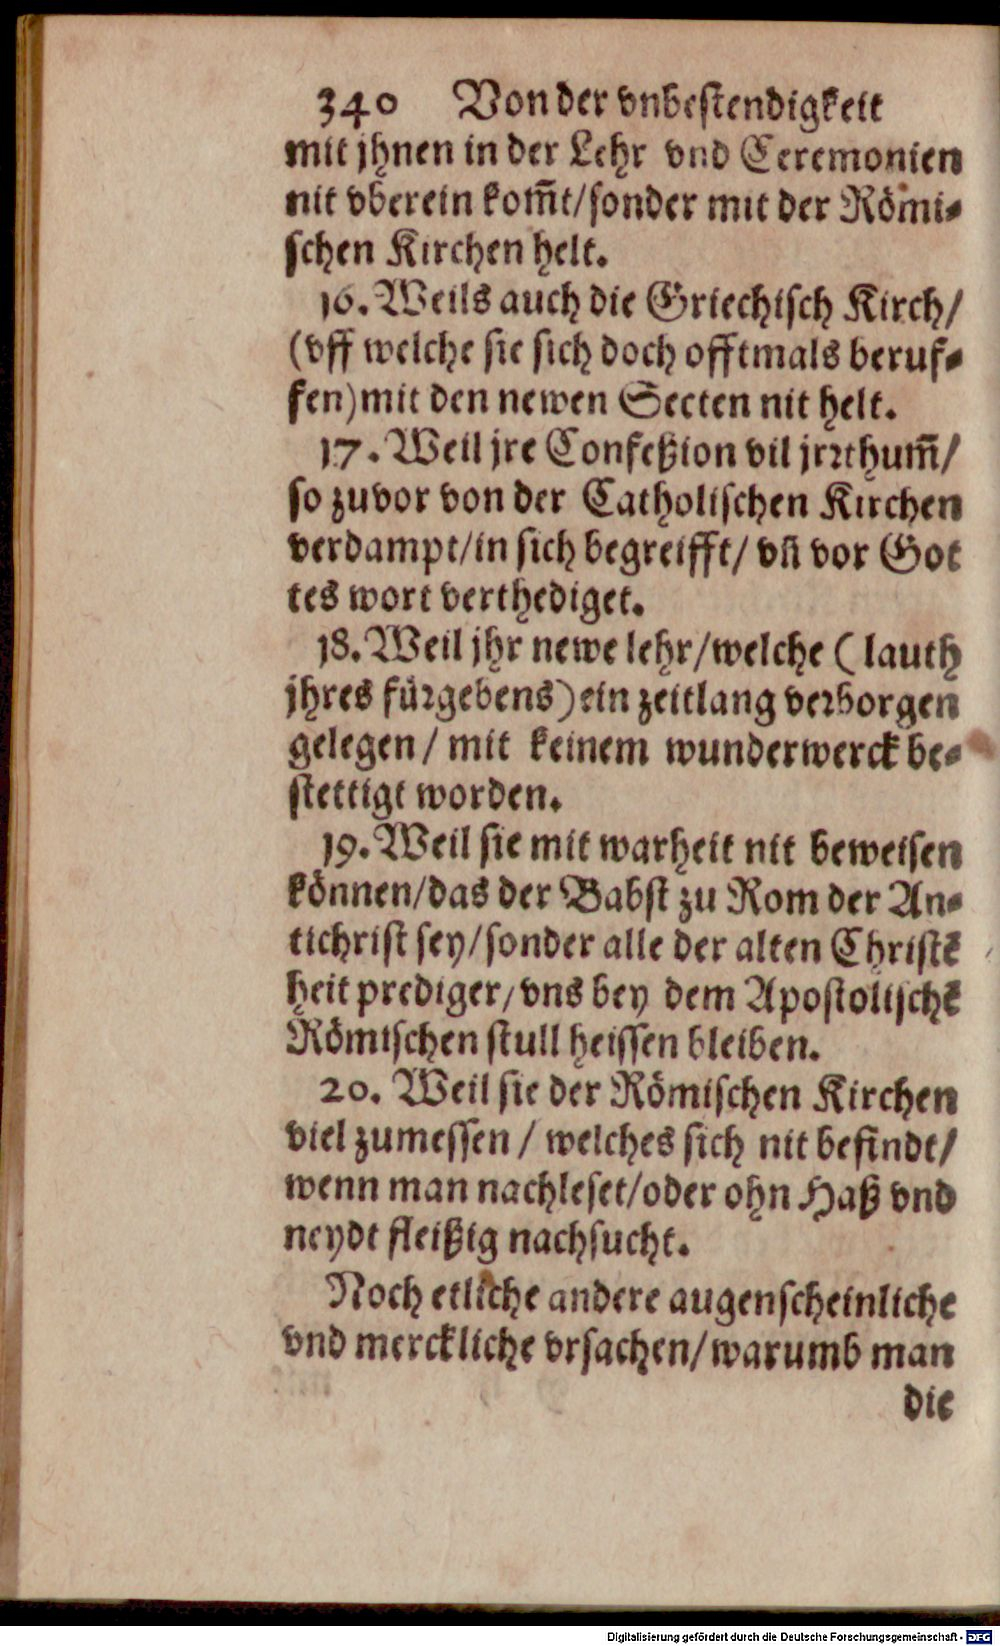 340 Von der vnbestendigkeit
mit jhnen in der Lehr vnd Ceremonien
nit vberein kom̃t/sonder mit der Römi-
schen Kirchen helt.
16. Weils auch die Griechisch Kirch/
(vff welche sie sich doch offtmals beruf-
fen) mit den newen Secten nit helt.
17. Weil jre Confeßion vil jrꝛthum̃/
so zuvor von der Catholischen Kirchen
verdampt/in sich begreifft/ vñ vor Got
tes wort verthediget.
18. Weil jhr newe lehr/welche (lauth
jhres fürgebens) ein zeitlang verborgen
gelegen/ mit keinem wunderwerck be-
stettigt worden.
19. Weil sie mit warheit nit beweisen
können/das der Babst zu Rom der An-
tichrist sey/sonder alle der alten Christē
heit prediger/vns bey dem Apostolischē
Römischen stull heissen bleiben.
20. Weil sie der Römischen Kirchen
viel zumessen/ welches sich nit befindt/
wenn man nachleset/oder ohn Haß vnd
neydt fleißig nachsucht.
Noch etliche andere augenscheinliche
vnd merckliche vrsachen/warumb man
die
Digitalisierung gefördert durch die Deutsche Forschungsgemeinschaft - DFG